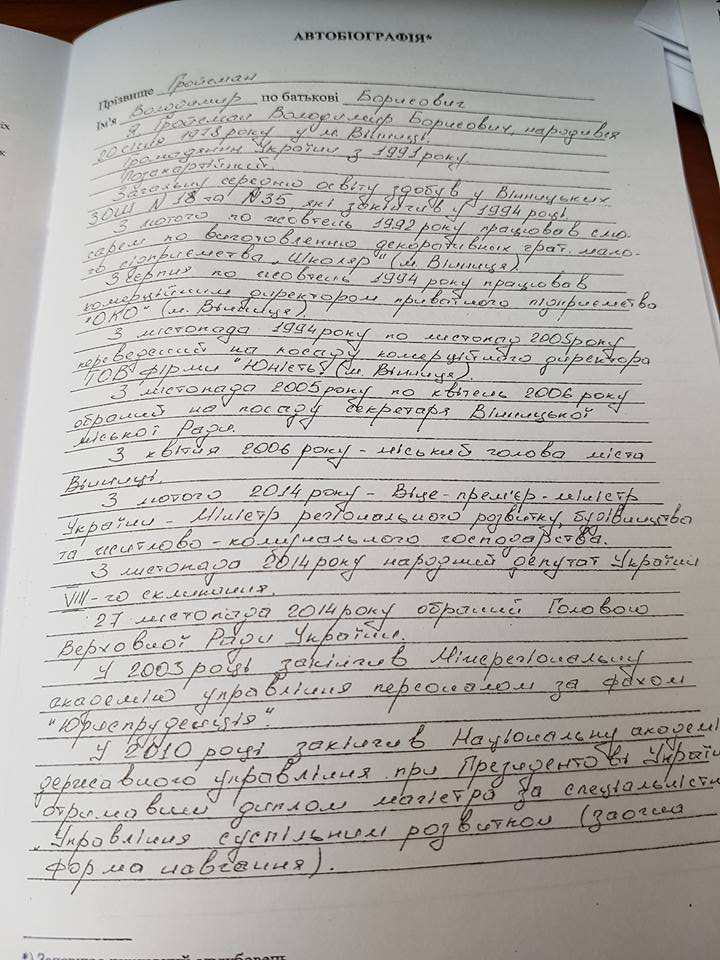 АВТОБІОГРАФІЯ*
Прізвище Гройсман
Ім'я Володимир по батькові Борисович
Я Гройсман Володимир Борисович, народився
20 січня 1978 року у м. Вінниці.
Громадянин України з 1991 року
Позапартійний.
Загальну середню освіту здобув у Вінницьких
ЗОШ N 18 та N 35, які закінчив у 1994 році.
З лютого по жовтень 1992 року працював слю-
сарем по виготовленню декоративних грат. мало-
го підприємства "Школяр" (м. Вінниця)
З серпня по жовтень 1994 року працював
комерційним директором приватного підприємства
"ОКО" (м. Вінниця)
З листопада 1994 року по листопад 2005 року
переведений на посаду комерційного директора
ТОВ фірми "Юність" (м. Вінниця).
З листопада 2005 року по квітень 2006 року
обраний на посаду секретаря Вінницької
міської Ради.
З квітня 2006 року - міський голова міста
Вінниці.
З лютого 2014 року - Віце-прем'єр-міністр
України - Міністр регіонального розвитку, будівництва
та житлово-комунального господарства.
З листопада 2014 року народний депутат України
VIII-го скликання.
27 листопада 2014 року обраний Головою
Верховної Ради України.
У 2003 році закінчив Міжрегіональну
академію управління персоналом за фахом
"Юриспруденція".
У 2010 році закінчив Національну академі
державного управління при Президентові Україн
отримавши диплом магістра за спеціальністю
"Управління суспільним розвитком (заочна
форма навчання).